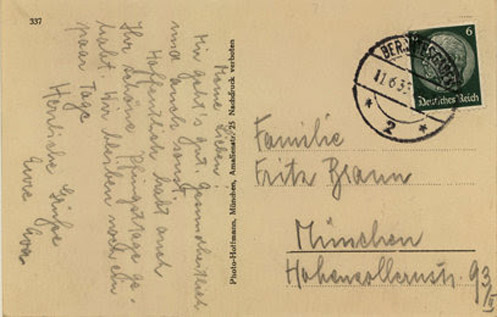 337
Meine Lieben!
Mir geht's gut. Gesundheitlich
und auch sonst.
Hoffentlich habt auch
Ihr schöne Pfingsttage ge-
habt. Wir bleiben noch ein
paar Tage
Herzliche Grüße
Eure Eva
Photo-Hoffmann, München, Amalienstr. 25 Nachdruck verboten
11.6.35
* 2 *
6
Deutsches Reich
Familie
Fritz Braun
München
Hohenzollernstr. 93/II